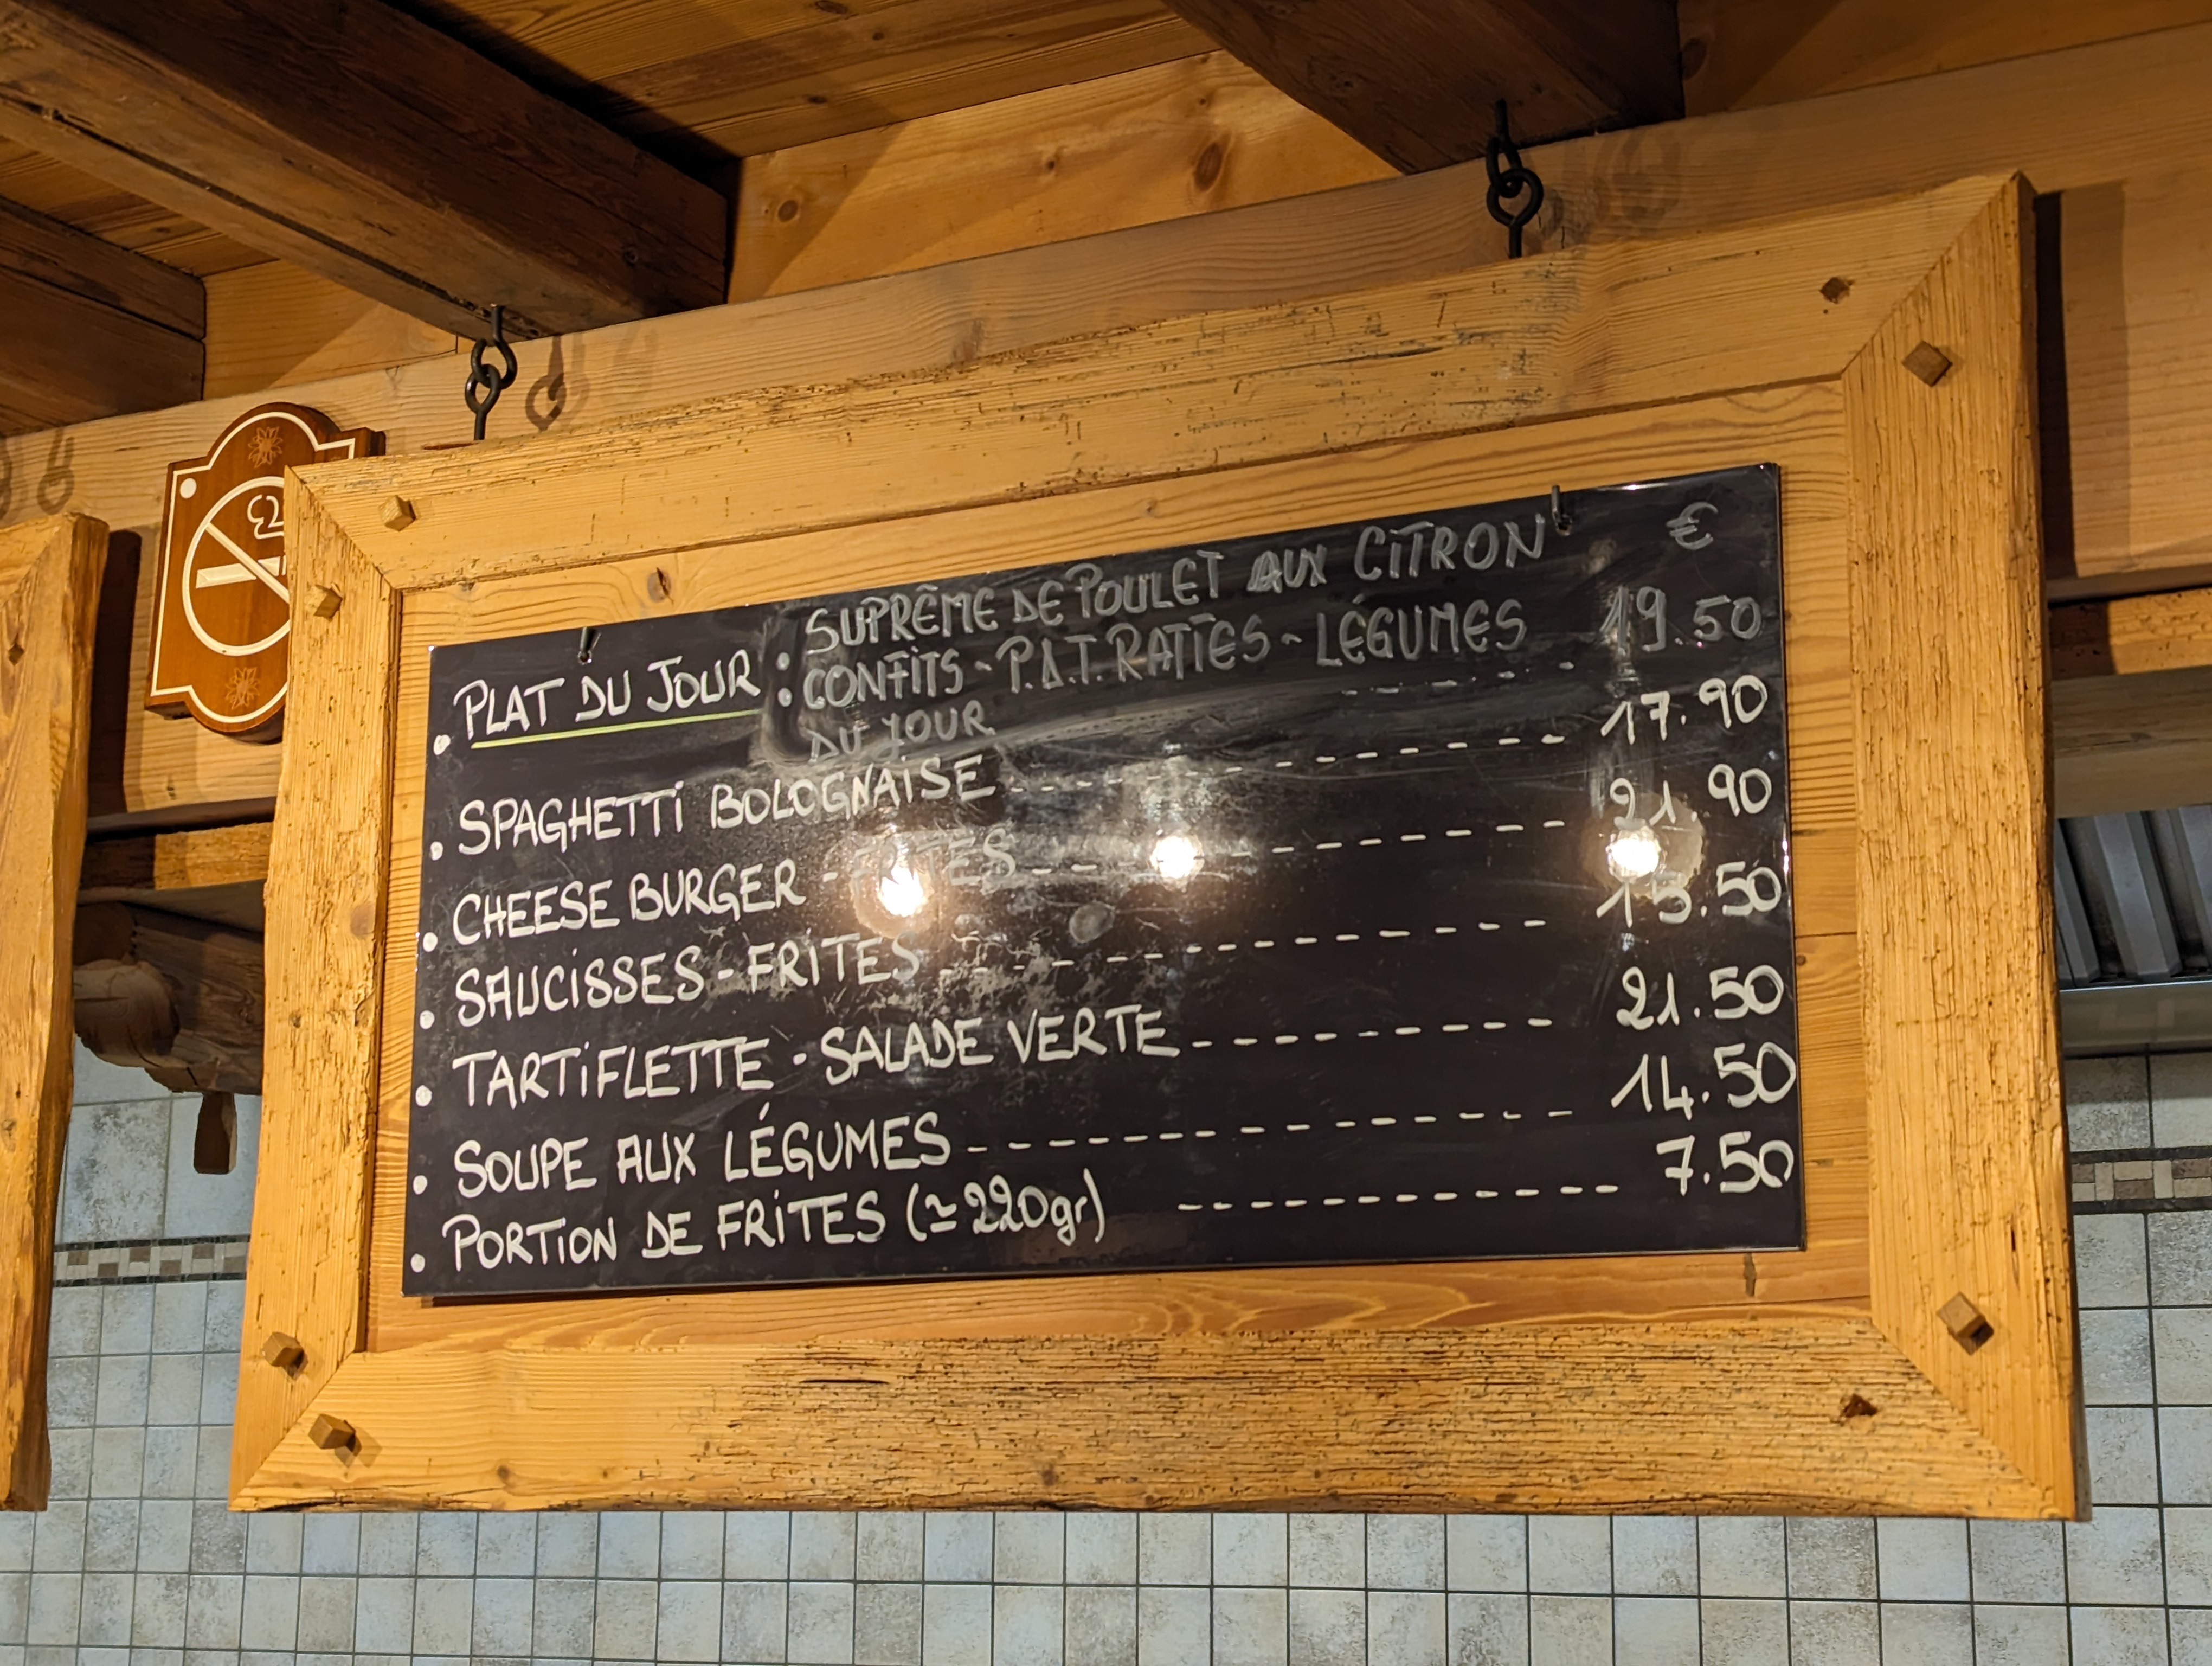 €
• PLAT DU JOUR : SUPRÊME DE POULET AUX CITRON
CONFITS - P.D.T. RATTES - LÉGUMES 19.50
DU JOUR
• SPAGHETTI BOLOGNAISE ------- 17.90
• CHEESE BURGER - FRITES ------- 21.90
• SAUCISSES - FRITES ------- 15.50
• TARTIFLETTE - SALADE VERTE ------- 21.50
• SOUPE AUX LÉGUMES ------- 14.50
• PORTION DE FRITES (≃220gr) ------- 7.50